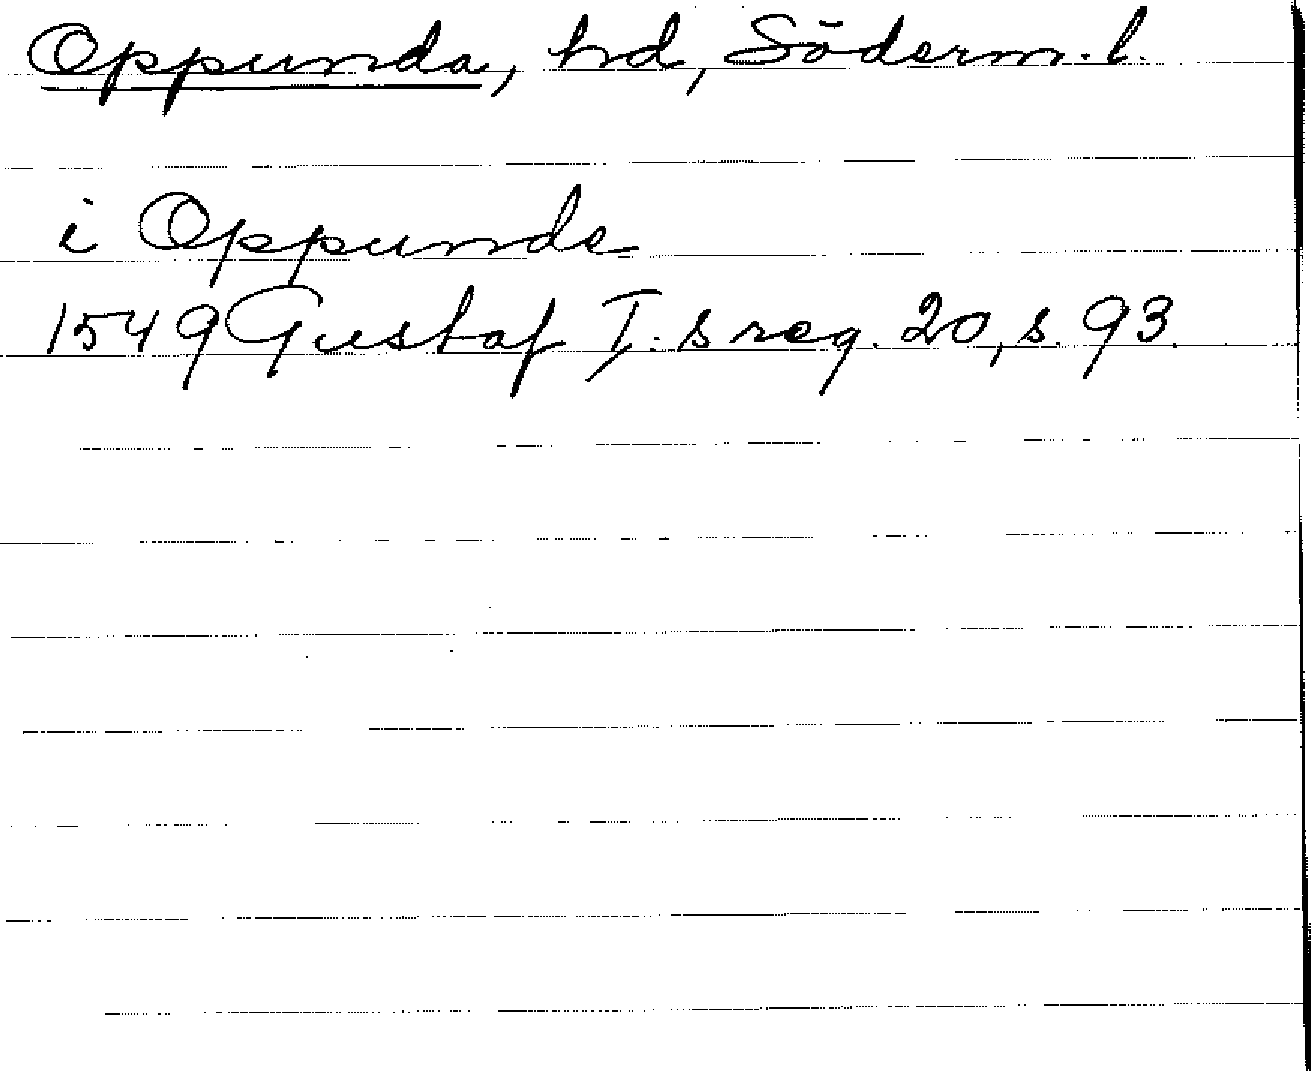 Oppunda, hd, Söderm. l.
i Oppunda
1549 Gustaf I:s reg. 20, s. 93.